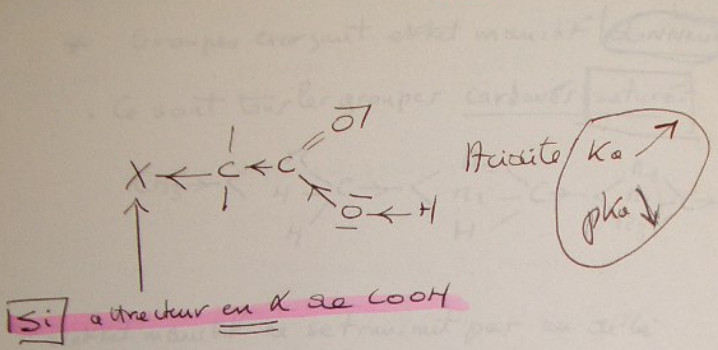 O
X C C Acidité Ka
O H pKa
Si attracteur en α de COOH